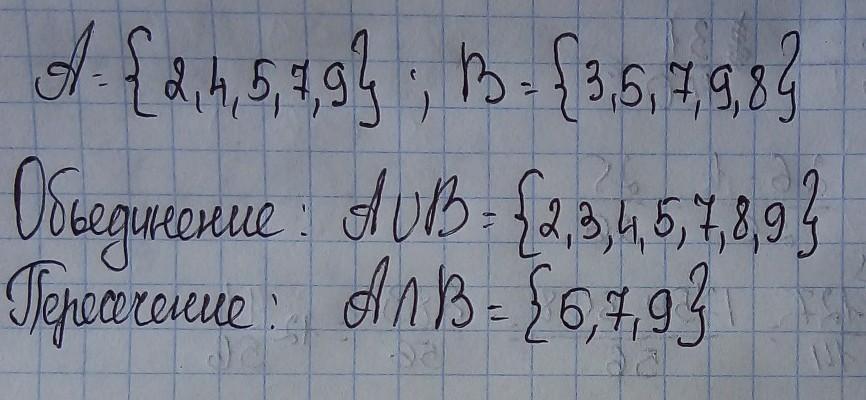 A = {2,4,5,7,9} ; B = {3,5,7,9,8}
Объединение: A∪B = {2,3,4,5,7,8,9}
Пересечение: A∩B = {5,7,9}